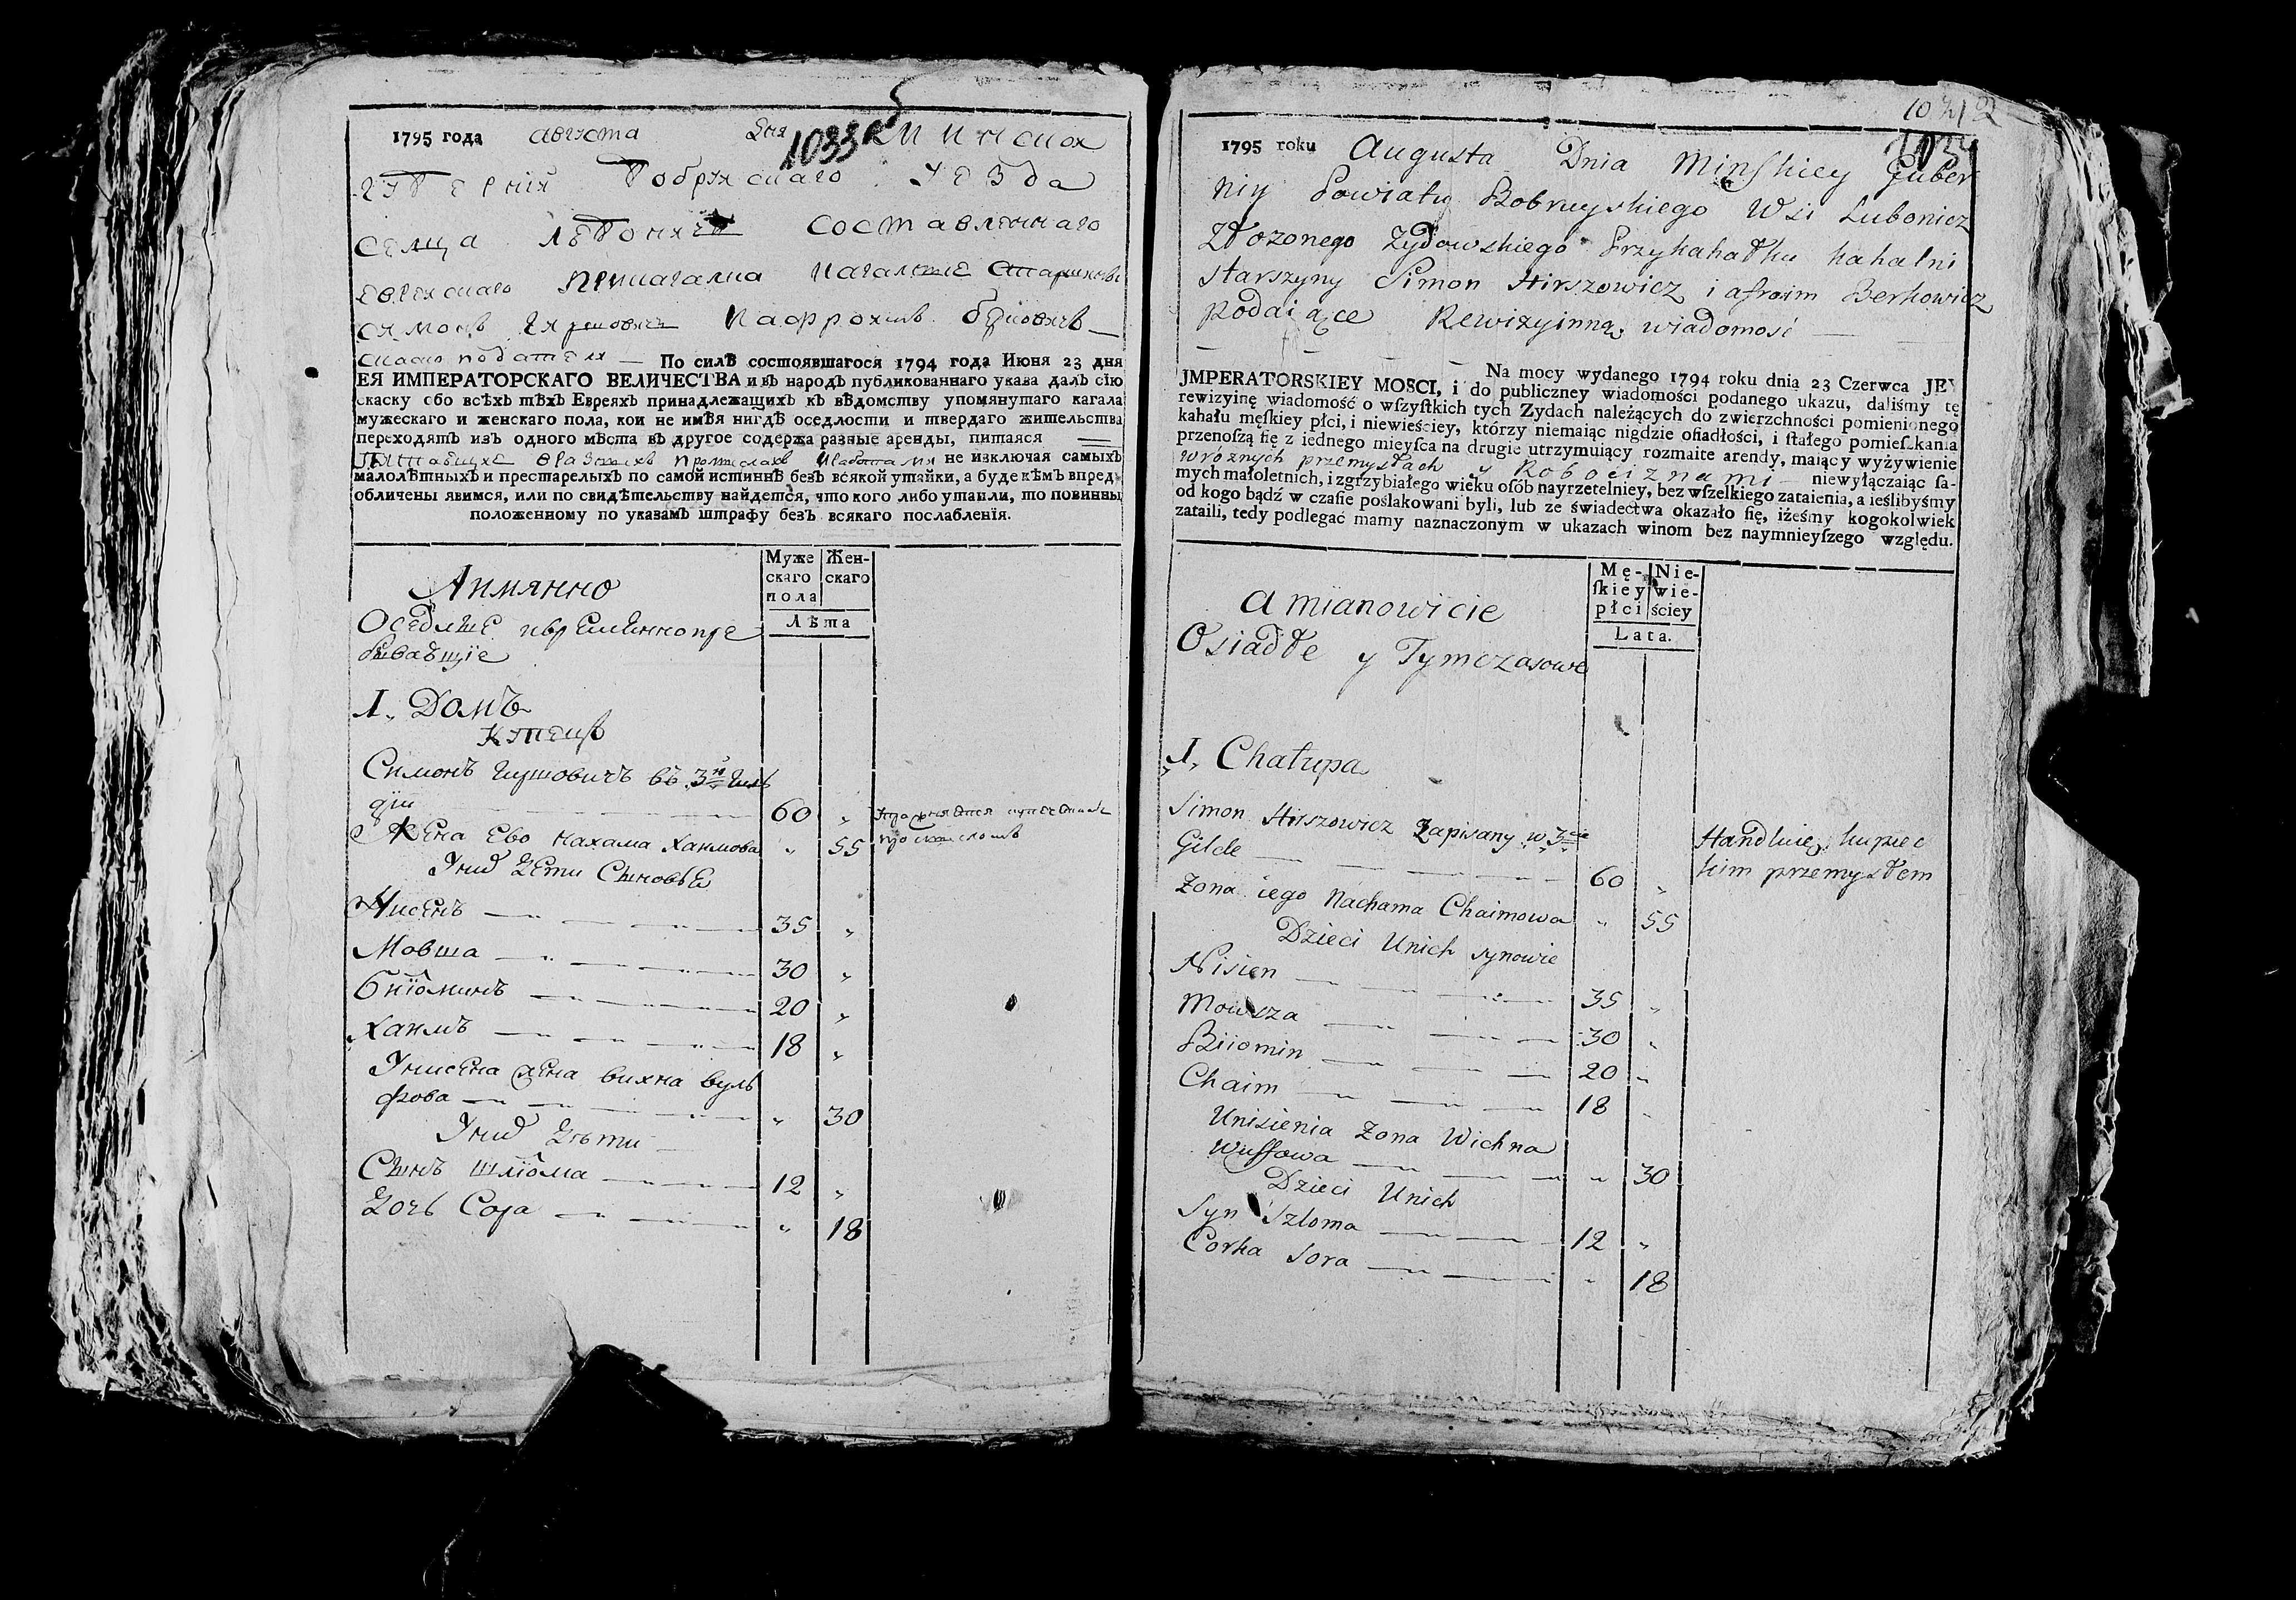 1795 года августа дня Минской
губернiи Бобруйскаго уезда
селца Любонич составленнаго
еврейскаго прикагалка кагалные старшины
Симонъ Гиршовичъ Иафроимъ Берковичъ
1033
По силѣ состоявшагося 1794 года Июня 23 дня
ЕЯ ИМПЕРАТОРСКАГО ВЕЛИЧЕСТВА и въ народъ публикованнаго указа далъ сїю
скаску обо всѣхъ тѣхъ Евреяхъ принадлежащихъ къ вѣдомству упомянутаго кагала
мужескаго и женскаго пола, кои не имѣя нигдѣ оседлости и твердаго жительства
переходятъ изъ одного мѣста въ другое содержа разные аренды, питаяся
не изключая самыхъ
малолѣтныхъ и престарелыхъ по самой истиннѣ безъ всякой утайки, а буде кѣмъ впред
обличены явимся, или по свидѣтельству найдется, что кого либо утаили, то повинны
положенному по указамъ штрафу безъ всякаго послабленїя.
Муже Жен-
скаго скаго
пола
Лѣта
Аимянно
Оседлые ивременнопре
бывающие
I. Домъ
Купецъ
Симонъ Гиршовичъ въ 3й Гиль
дiи 60 „ Упражняется купеческимъ
Жена ево Нахама Хаимова „ 55 промысломъ
Уних дети Сыновье
Нисенъ 35 „
Мовша 30 „
Биiоминъ 20 „
Хаимъ 18 „
Унисена жена Вихна Вуль
фова „ 30
Уних дѣти
Сынъ Шлiома 12 „
Дочь Сора „ 18
1795 roku Augusta Dnia Minskiey Guber
nii Powiatu Bobruyskiego Wsi Lubonicz
Złozonego Zydowskiego Przykahałku kahalni
starszyny Simon Hirszowicz i afroim Berkowicz
Podaiące Rewizyinną wiadomość
Na mocy wydanego 1794 roku dnia 23 Czerwca JEY
JMPERATORSKIEY MOSCI, i do publiczney wiadomości podanego ukazu, daliśmy tę
rewizyinę wiadomość o wſzyſtkich tych Zydach należących do zwierzchności pomienionego
kahału męſkiey płci, i niewieściey, którzy niemaiąc nigdzie oſiadłości, i ſtałego pomieſzkania
przenoſzą ſię z iednego mieyſca na drugie utrzymuiący rozmaite arendy, maiący wyżywienie
w roznych przemysłach y Robociznami niewyłączaiąc ſa-
mych małoletnich, i zgrzybiałego wieku osób nayrzetelniey, bez wſzelkiego zataienia, a ieślibyśmy
od kogo bądź w czaſie poślakowani byli, lub ze świadectwa okazało ſię, iżeśmy kogokolwiek
zataili, tedy podlegać mamy naznaczonym w ukazach winom bez naymnieyſzego względu.
Mę- Nie-
ſkiey wie-
płci ściey
Lata.
a mianowicie
Osiadłe y Tymczasowe
I, Chałupa
Simon Hirszowicz Zapisany w 3cie
Gilde 60 „ Handluie kupiec
Zona iego Nachama Chaimowa „ 55 kim przemysłem
Dzieci Unich synowie
Nisien 35 „
Mowsza 30 „
Biiomin 20 „
Chaim 18 „
Unisienia Zona Wichna
Wulfowa „ 30
Dzieci Unich
Syn Szloma 12 „
Corka Sora „ 18